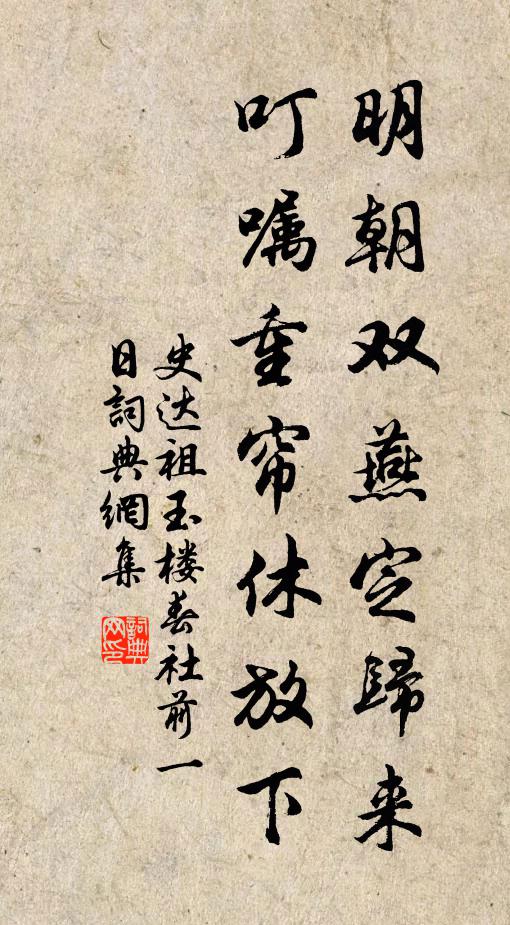 明朝双燕定歸来
叮嘱重帘休放下
史达祖玉楼春社前一
日詞典網集
詞典
网印